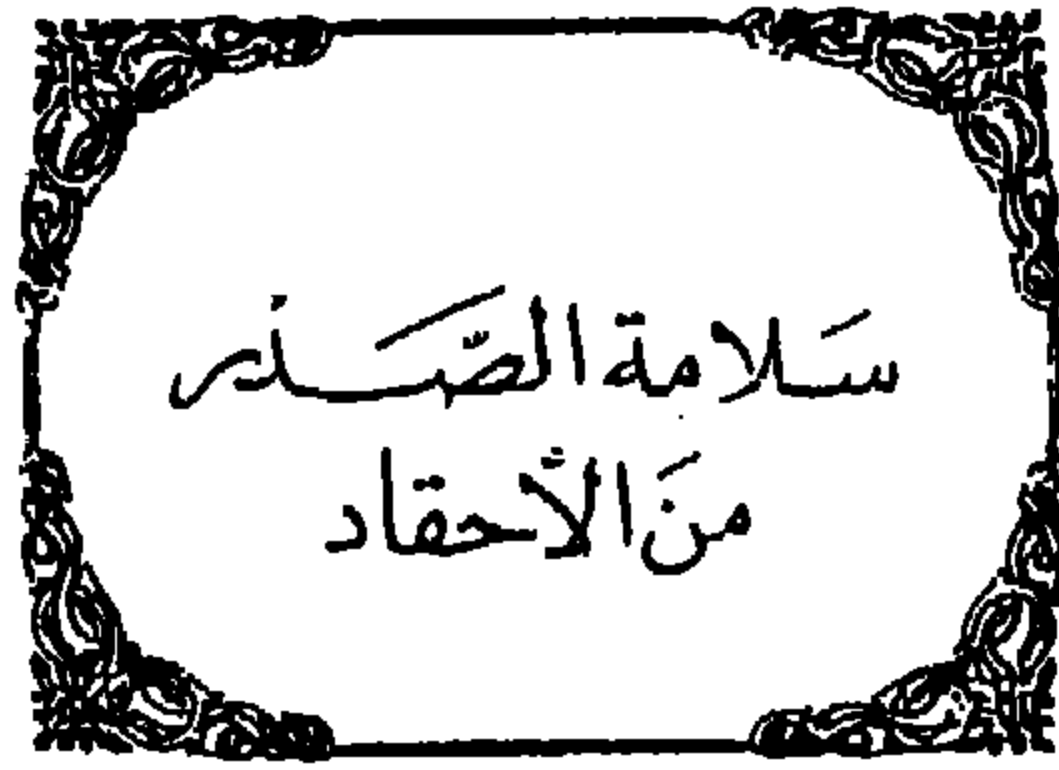 سَلامة الصَّدْر
منَ الأحقاد